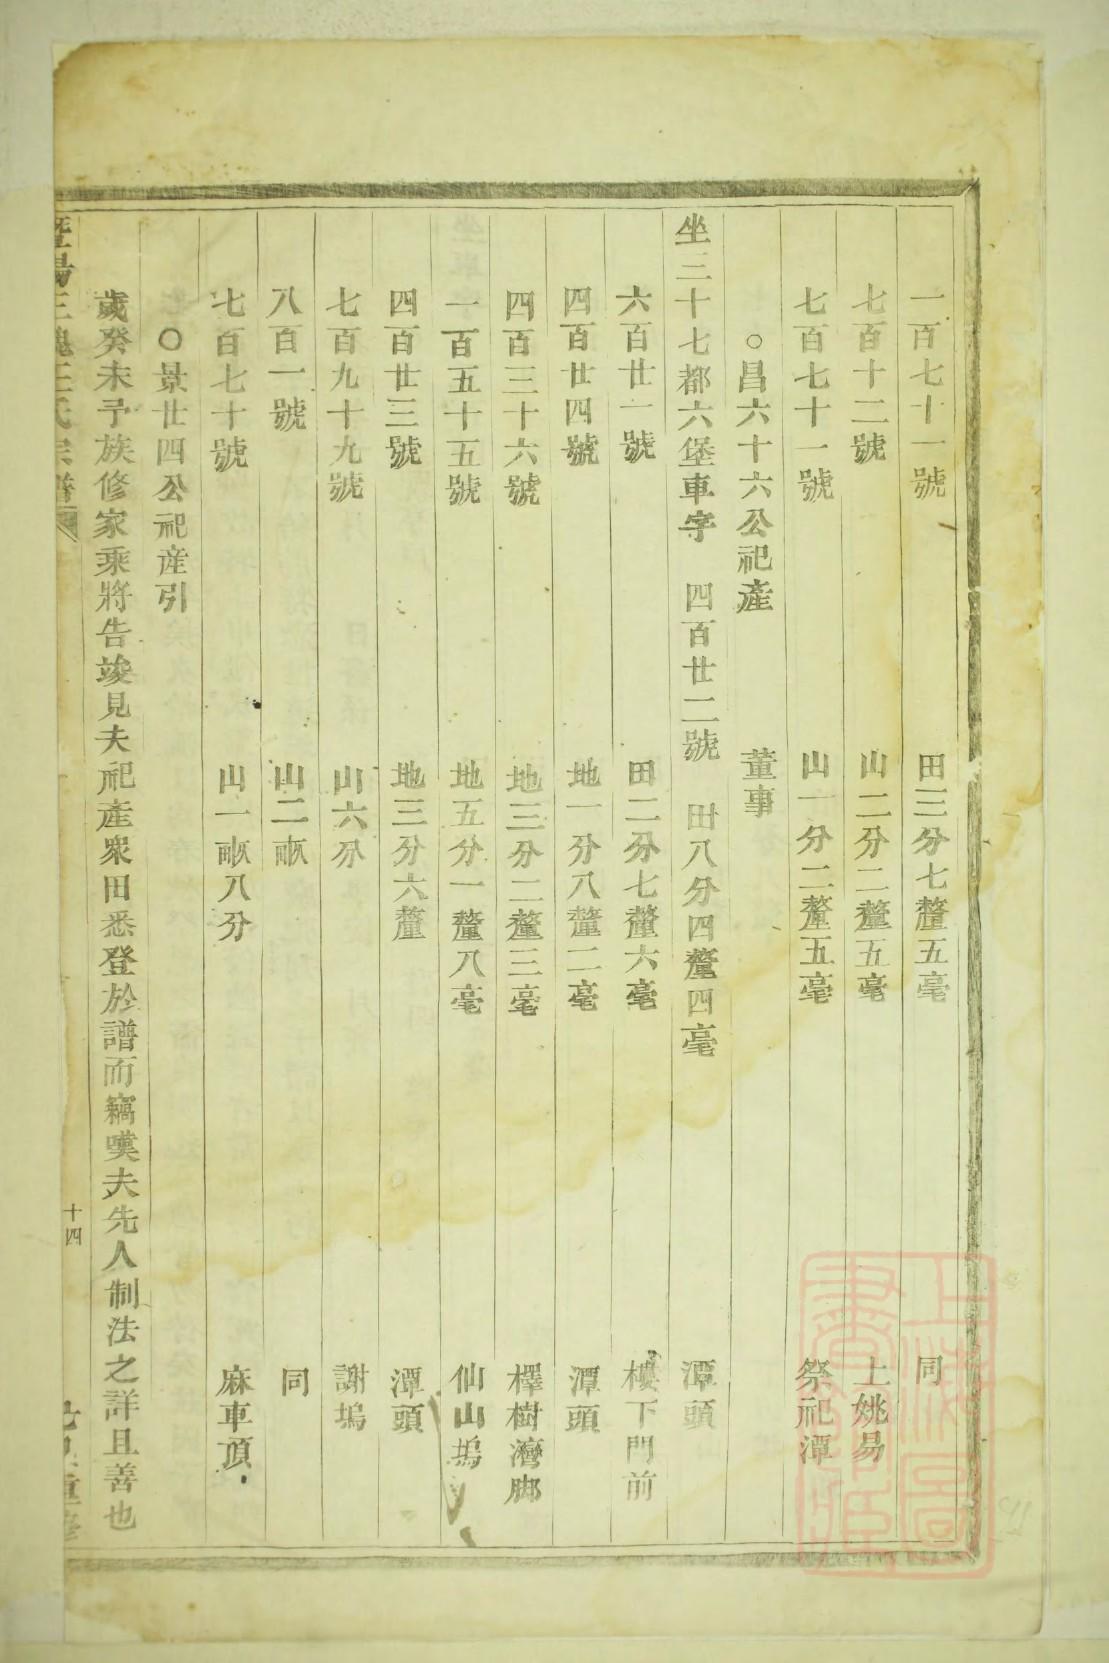 一百七十一號 田三分七釐五毫 同
七百十二號 山二分二釐五毫 上姚易
七百七十一號 山一分二釐五毫 祭祀潭
○昌六十六公祀產 董事
坐三十七都六堡車字 四百廿二號 田八分四釐四毫 潭頭
六百廿一號 田二分七釐六毫 樓下門前
四百廿四號 地一分八釐二毫 潭頭
四百三十六號 地三分二釐三毫 檡樹灣脚
一百五十五號 地五分一釐八毫 仙山塢
四百廿三號 地三分六釐 潭頭
七百九十九號 山六分 謝塢
八百一號 山二畝 同
七百七十號 山一畝八分 麻車頂
○景廿四公祀產引
歲癸未予族修家乘將告竣見夫祀產衆田悉登於譜而竊嘆夫先人制法之詳且善也
暨陽王氏宗譜
十四
重修
上海圖書館藏